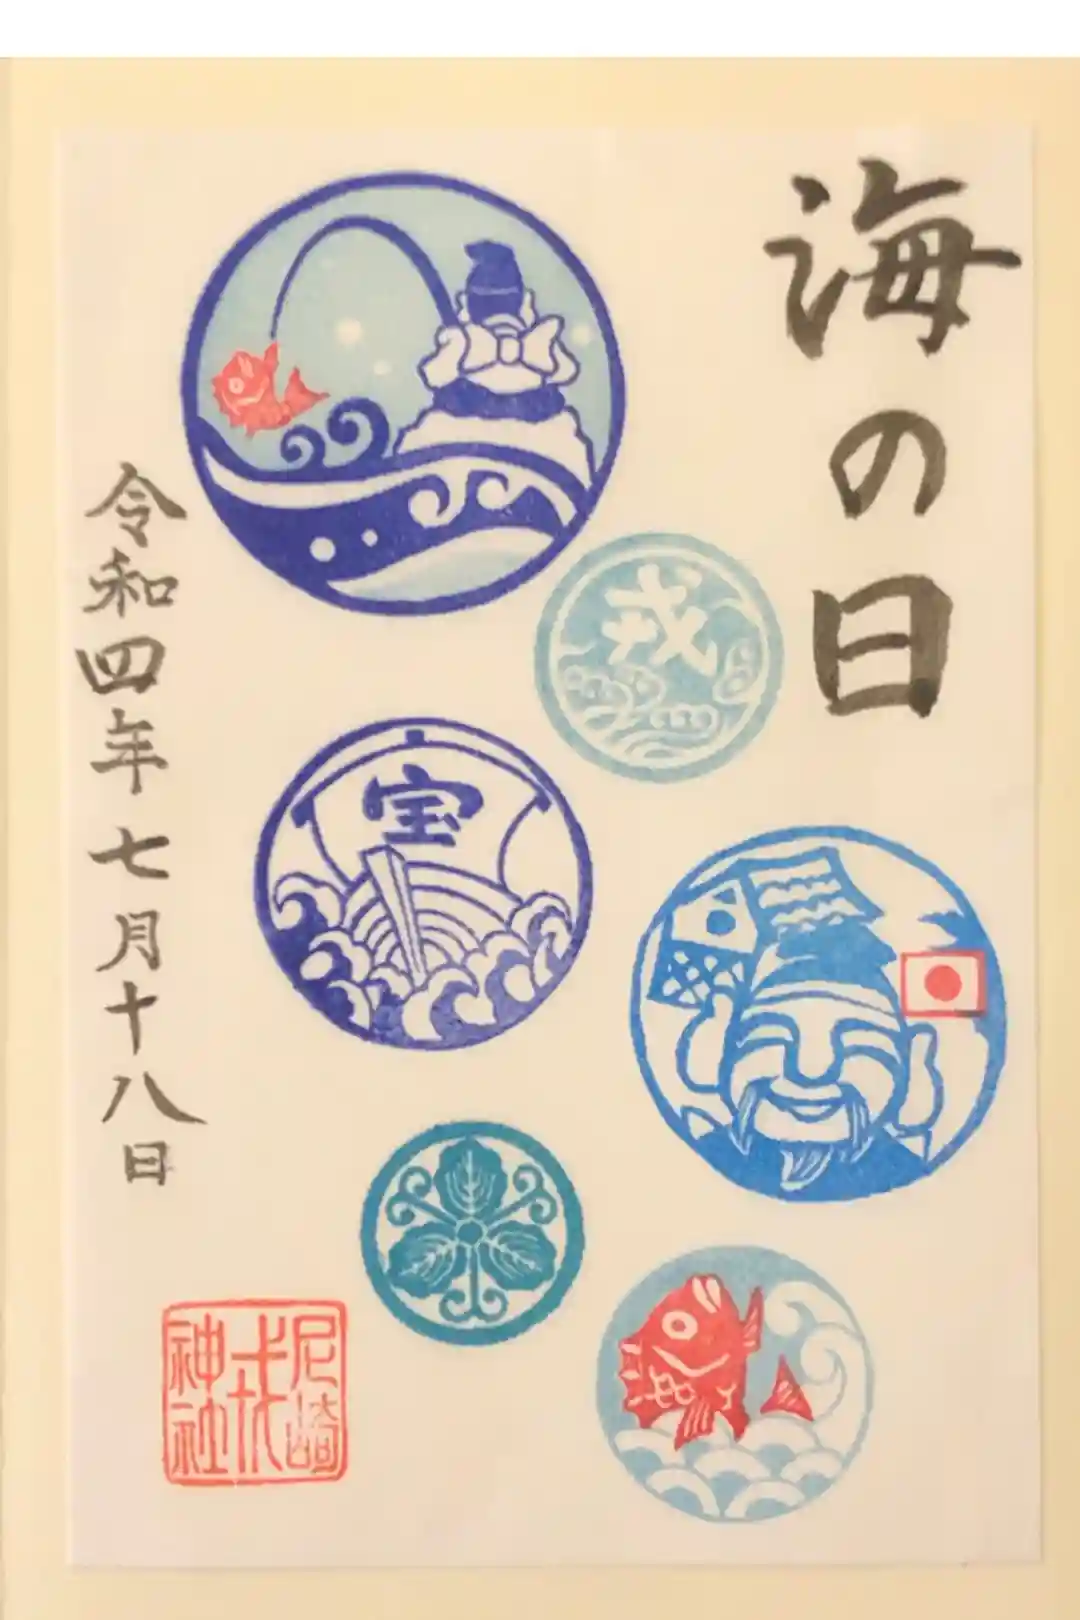 海の日
戎
宝
令和四年七月十八日
尼崎
戎
神社